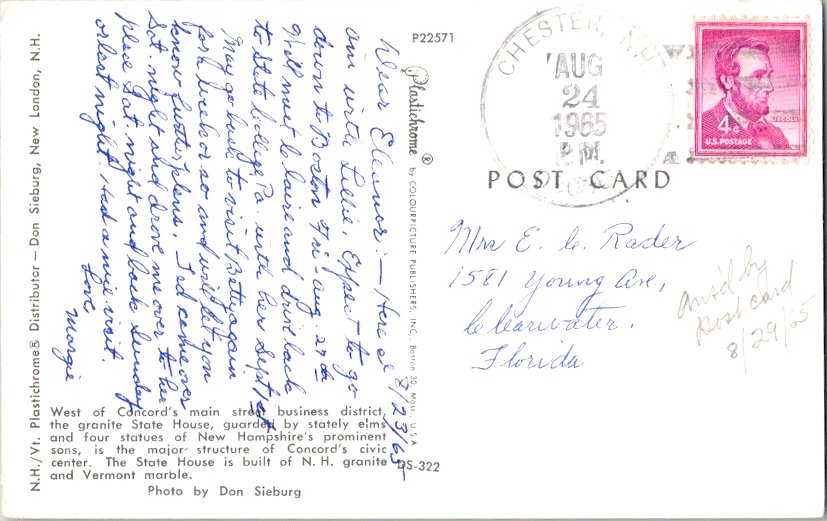 P22571
CHESTER, N.H.
AUG
24
1965
P.M.
4¢
LINCOLN
U.S. POSTAGE
POST CARD
8/23/65
Dear Eleanor:— Here I
am with Lillie. Expect to go
down to Boston Fri - Aug. 27th
Will meet Claire and drive back
to State College Pa. with her Sept 1st
May go back to visit Betty again
for a week or so and will let you
know further plans. Ted came over
Sat. night and drove me over to her
place Sat. night and back Sunday
or last night. Had a nice visit.
Love,
Margie
Mrs E. C. Rader
1581 Young Ave,
Clearwater,
Florida
Ans'd by
Post card
8/29/65
Plastichrome ® by COLOURPICTURE PUBLISHERS, INC., Boston 30, Mass., U.S.A.
N.H./Vt. Plastichrome® Distributor — Don Sieburg, New London, N.H.
West of Concord's main street business district,
the granite State House, guarded by stately elms
and four statues of New Hampshire's prominent
sons, is the major structure of Concord's civic
center. The State House is built of N.H. granite
and Vermont marble.
Photo by Don Sieburg
DS-322